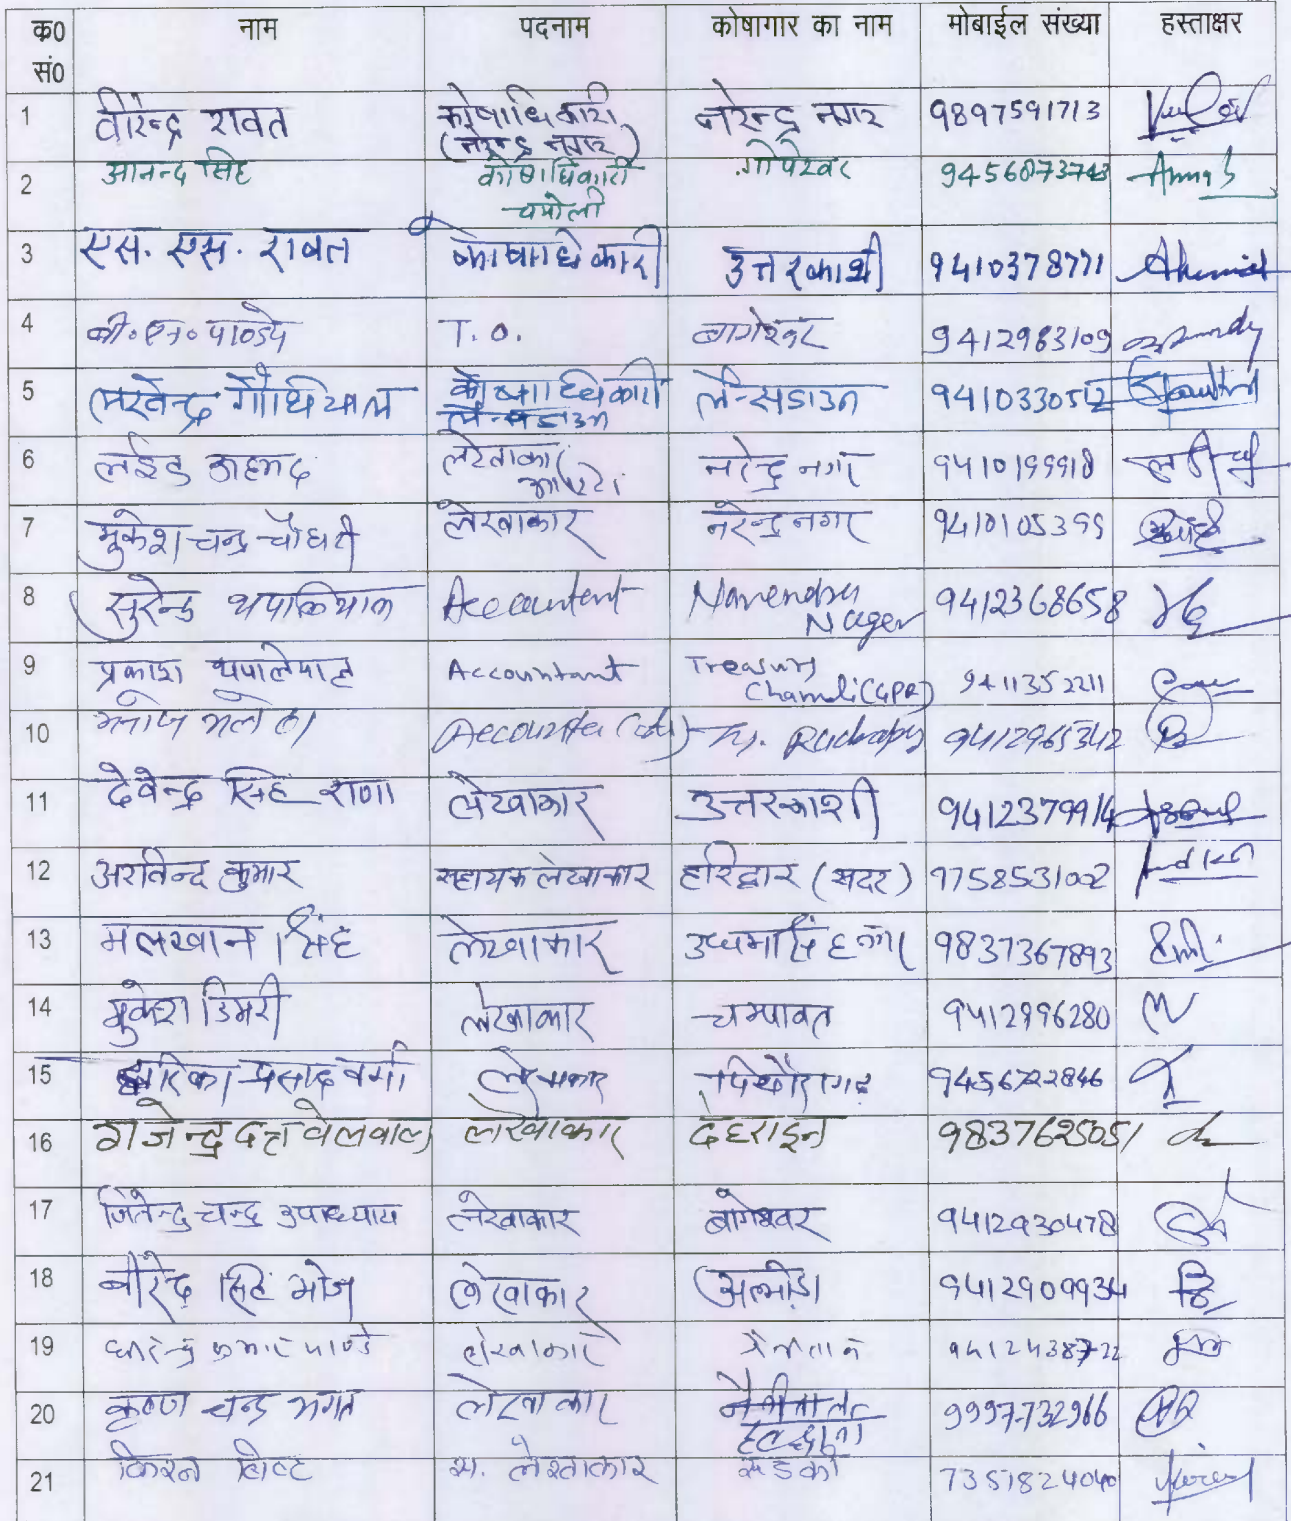 क0 सं0 नाम पदनाम कोषागार का नाम मोबाईल संख्या हस्ताक्षर
1 वीरेन्द्र रावत कोषाधिकारी (नरेन्द्र नगर) नरेन्द्र नगर 9897591713
2 आनन्द सिंह कोषाधिकारी चमोली गोपेश्वर
3 एस. एस. रावत कोषाधिकारी उत्तरकाशी 9410378771
4 पाण्डे T.O. बागेश्वर 9412983109
5 कोषाधिकारी लैन्सडाउन लैन्सडाउन 9410330512
6 अहमद लेखाकार नरेन्द्र नगर
7 मुकेश चन्द्र चौधरी लेखाकार नरेन्द्रनगर 9410105399
8 सुरेन्द्र थपलियाल Accountent Narendra Nager 9412368658
9 प्रकाश थपलियाल Accountant Treasury Chamoli (GPR) 9411352211
10 9412965342
11 देवेन्द्र सिंह राणा लेखाकार उत्तरकाशी 9412379914
12 अरविन्द कुमार सहायक लेखाकार हरिद्वार (सदर) 9758531002
13 मलखान सिंह लेखाकार उधमसिंह नगर 9837367893
14 मुकेश डिमरी लेखाकार चम्पावत 9412996280
15 द्वारिका प्रसाद वर्मा लेखाकार पिथौरागढ़ 9456722846
16 राजेन्द्र दत्त वेलवाल लेखाकार देहरादून 9837625051
17 जितेन्द्र चन्द्र उपाध्याय लेखाकार बागेश्वर 9412930478
18 बीरेन्द्र सिंह भोज लेखाकार अल्मोड़ा 9412909934
19 कुमार पाण्डे लेखाकार नैनीताल
20 कृष्ण चन्द्र भगत लेखाकार नैनीताल हल्द्वानी 9997732966
21 किरन बिष्ट स. लेखाकार रूड़की 7351824040